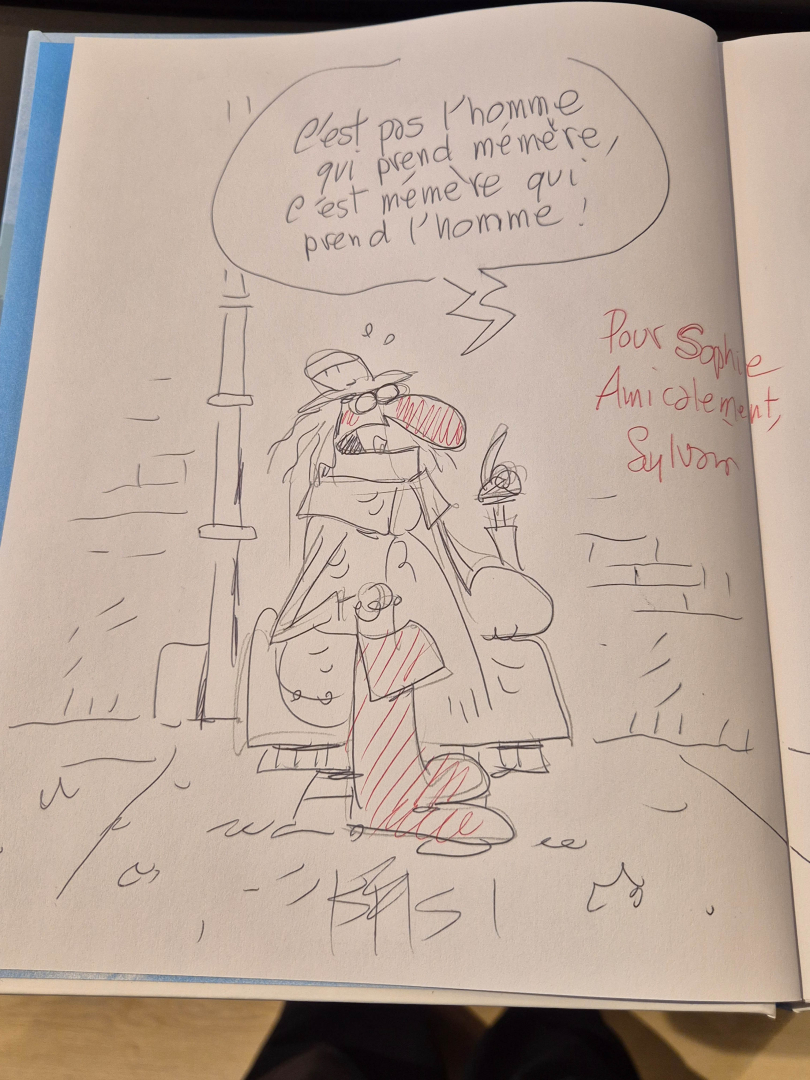 C'est pas l'homme
qui prend mémère,
c'est mémère qui
prend l'homme !
Pour Sophie
Amicalement,
Sylvain